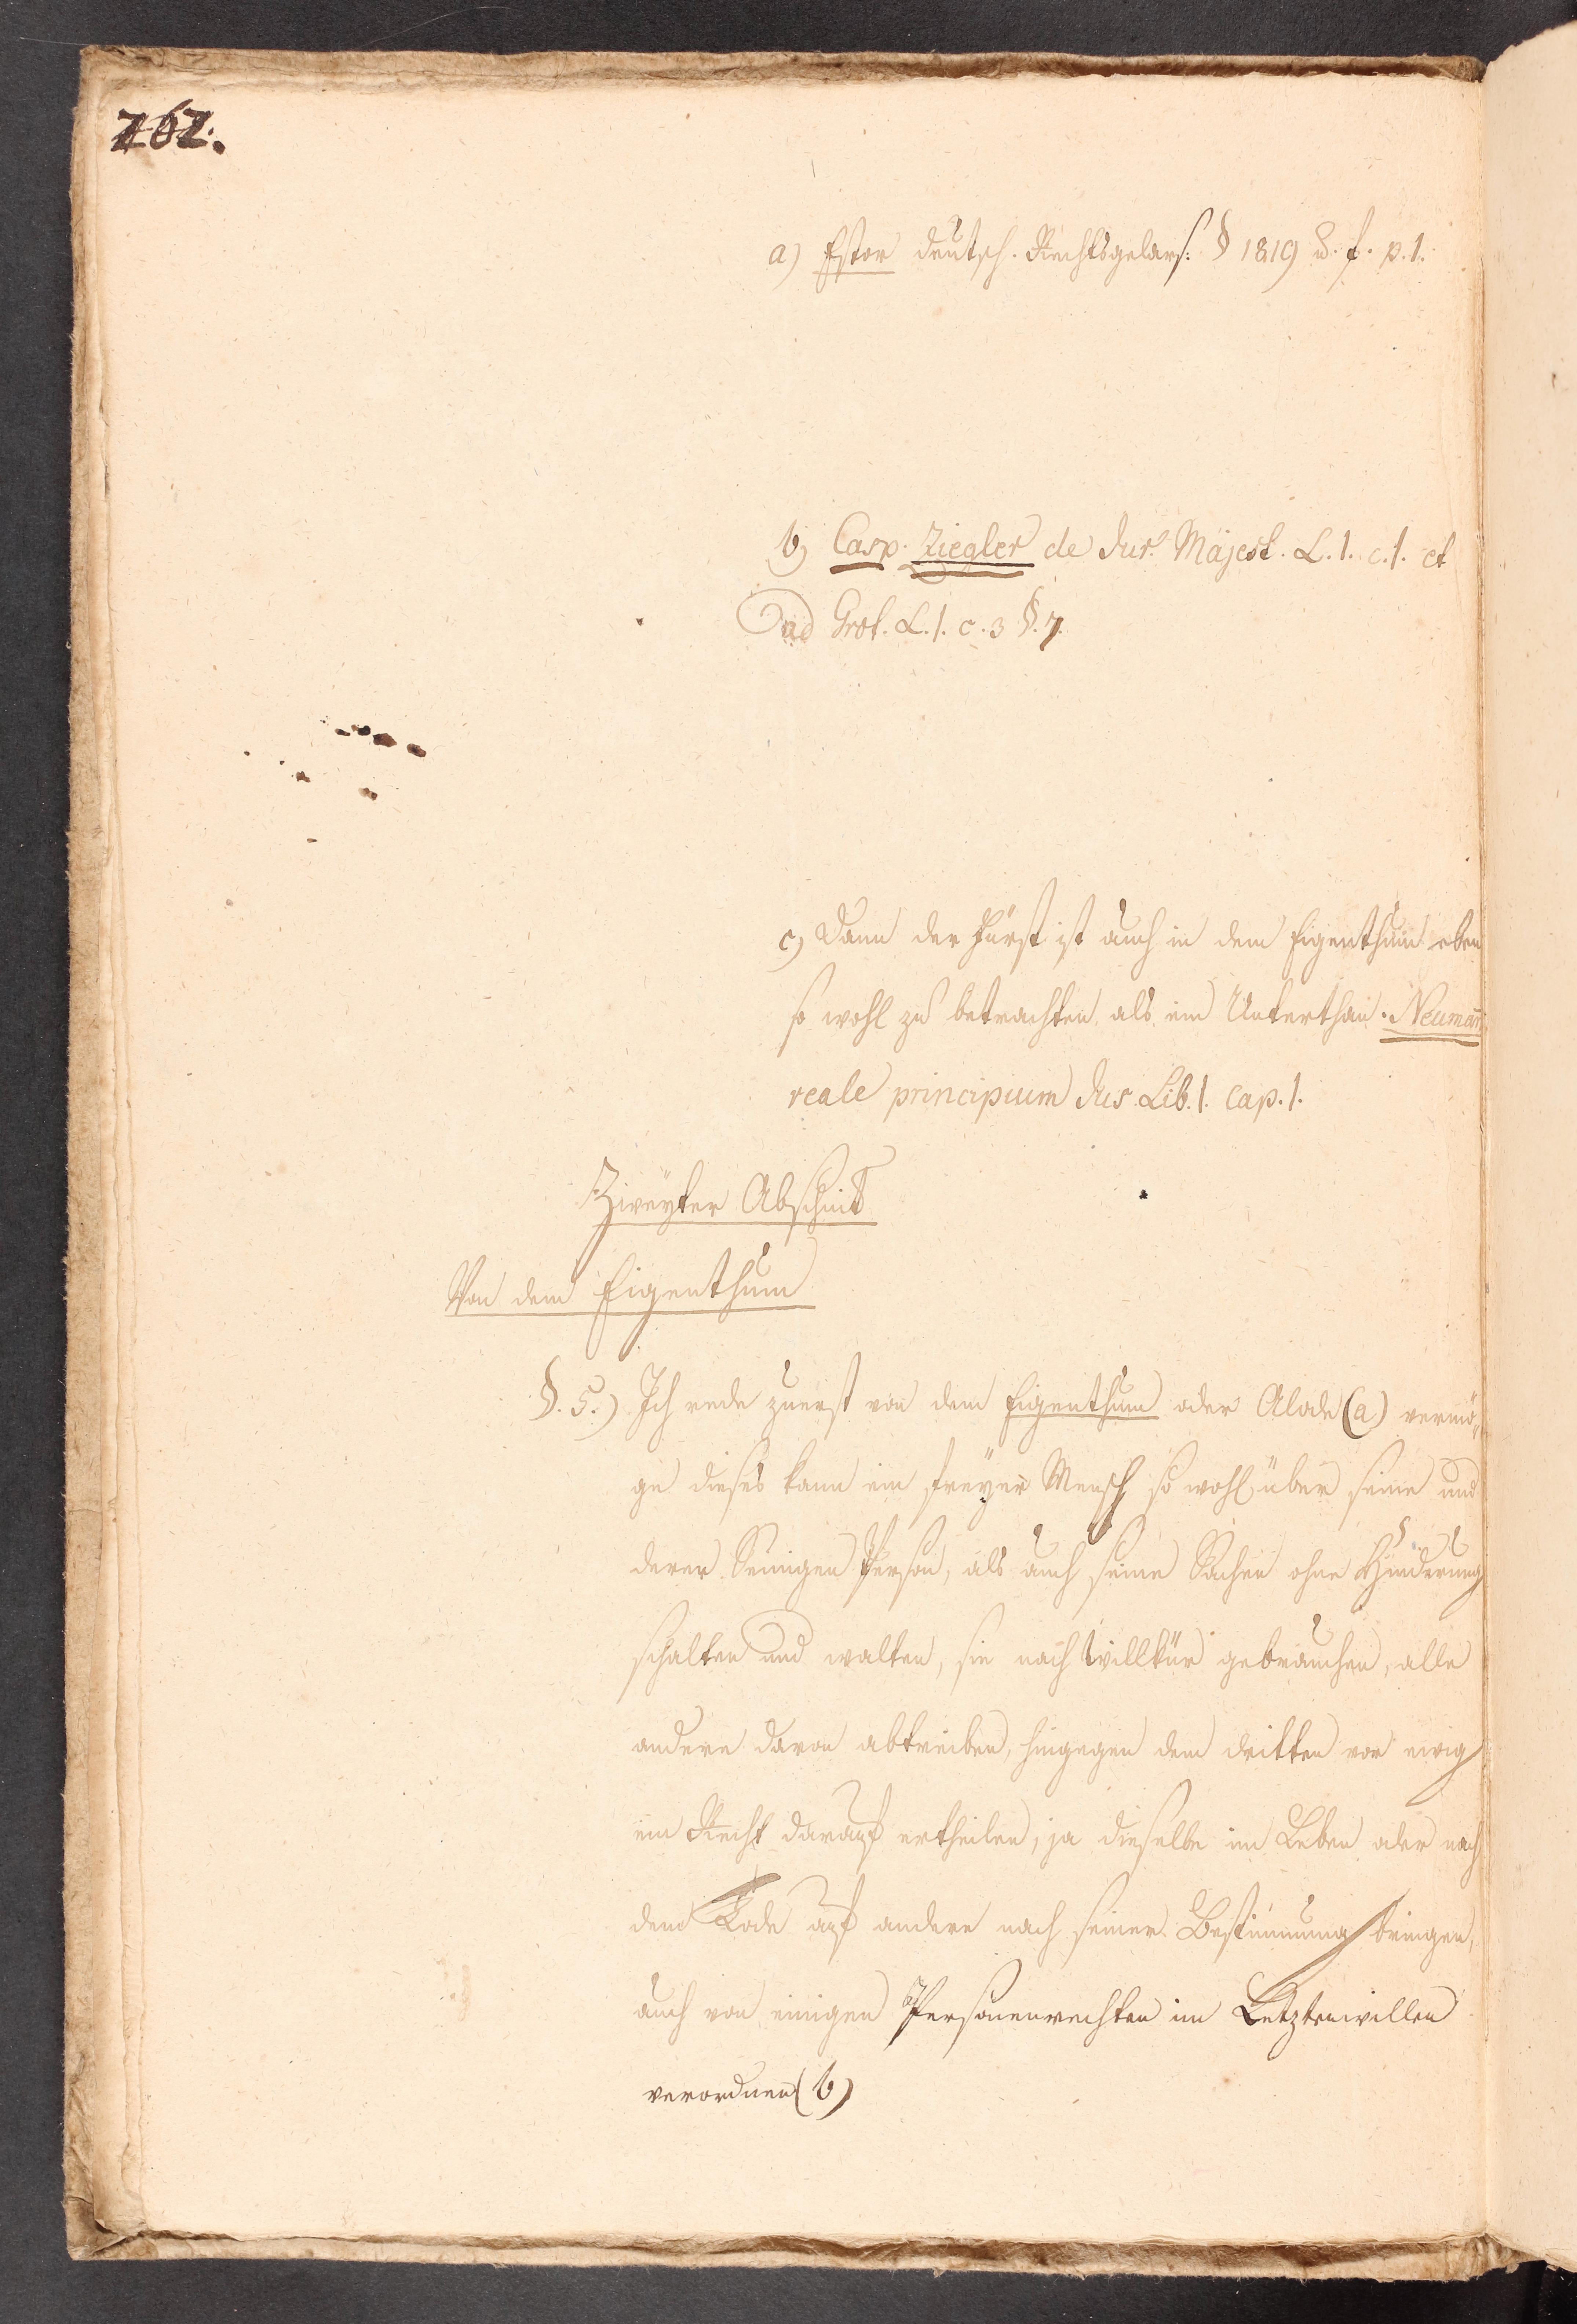 262.
a) Estor deutsch. Rechtsgelars. § 1819 u. f. p. 1.
b) Casp. Ziegler de Jur. Majest. L. 1. c. 1. et
ad Grot. L. 1. c. 3 §. 7.
c) Dann der Fürst ist auch in dem Eigenthum eben
so wohl zu betrachten als ein Unterthan. Neumañ
reale principium Jus. Lib. 1. Cap. 1.
Zweyter Abschnitt
Von dem Eigenthum
§. 5.) Ich rede zuerst von dem Eigenthum oder Alode (a) vermö¸
ge dieses kann ein freyer Mensch so wohl über seine und
derer Seinigen Person, als auch seine Sachen ohne Hinderung
schalten und walten, sie nach Willkür gebrauchen, alle
andere davon abtreiben, hingegen dem dritten vor ewig
ein Recht darauf ertheilen, ja dieselbe im Leben oder nach
dem Tode auf andere nach seiner Bestimmung bringen,
auch von einigen Personenrechten im Letztenwillen
verordnen (b)